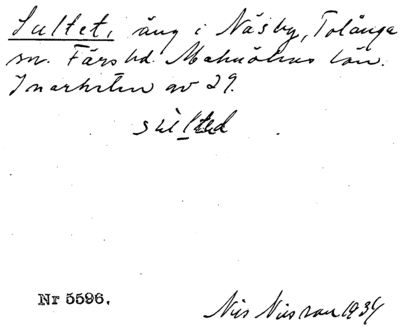 Sultet, äng i Näsby, Tolånga
sn. Färs hd. Malmöhus län.
Inarkiten av 29.
Nr 5596.
Nils Nilsson 1934